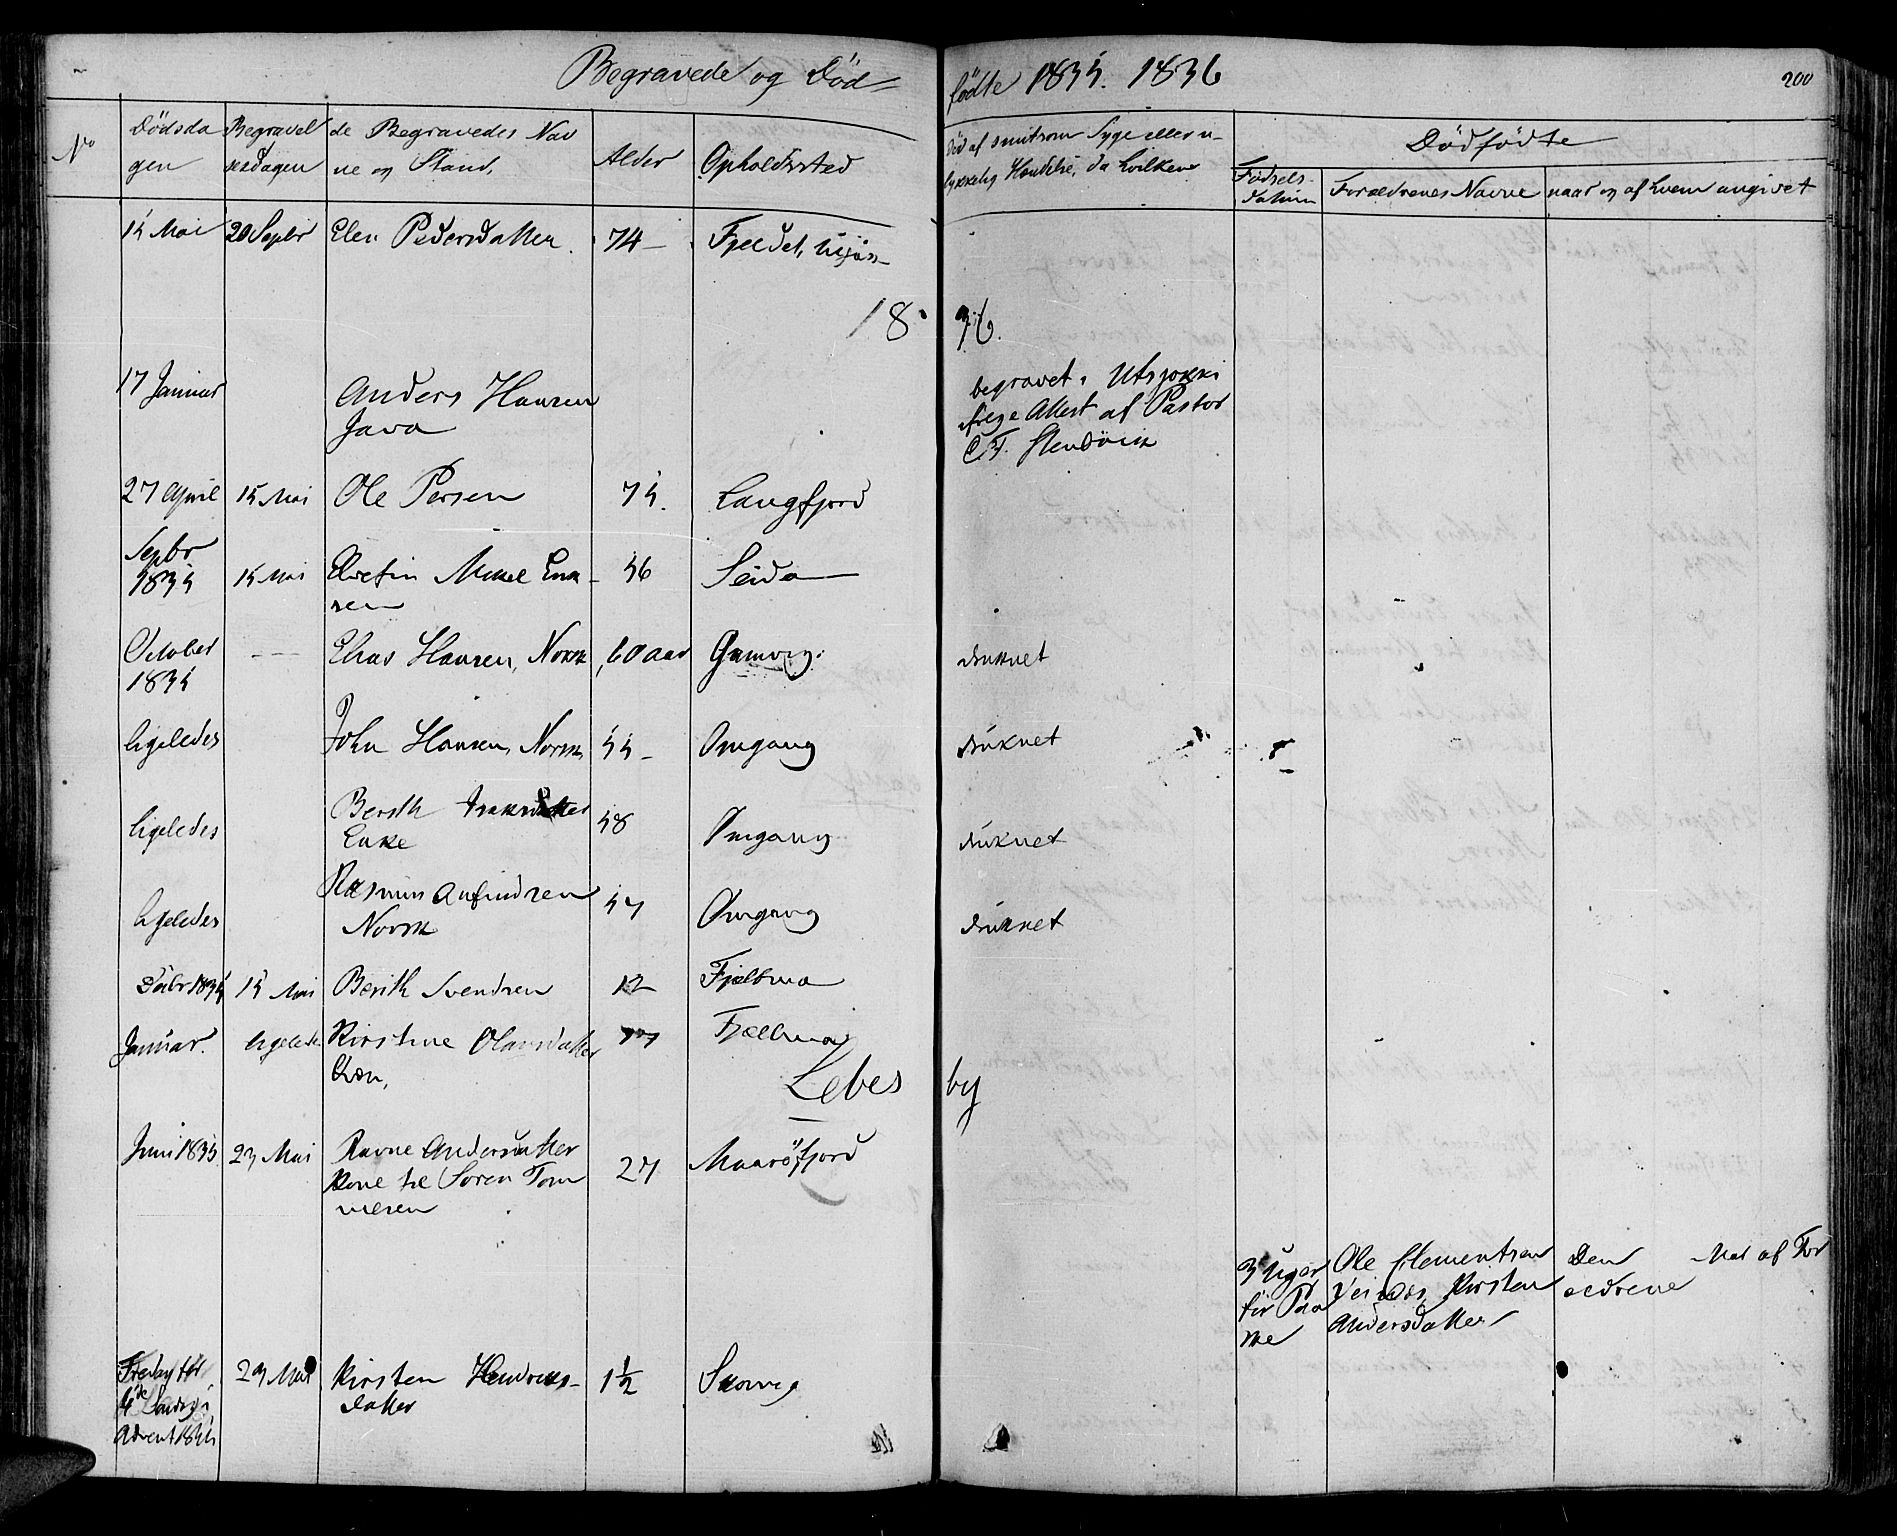 Begravede og Død-
fødte 1835. 1836
200
No
Dödsda
gen
Begravel
sesdagen
de Begravedes Nav
ne og Stand,
Alder
Opholdssted
Død af smitsom Syge eller u-
lykkelig Hændelse, da hvilken
Dødfødte
Fødsels-
datum
Forældrenes Navne
naar og af hvem angivet
15 Mai 20 Sepbr Elen Pedersdatter. 74- Fjeldet,
18 36.
17 Januar Anders Hansen
Java
begravet i Utsjokki
ifølge Attest af Pastor
27 April 15 Mai Ole Persen 75. Langfjord
Sepbr
1835 15 Mai Mikel
sen 56 Seida
October
1835 Elias Hansen, Norsk 60 aar Gamvig. druknet
ligeledes John Hansen, Norsk 55- Omgang druknet
ligeledes Berith Isaksdatter
Enke 58 Omgang druknet
ligeledes Rasmus Anfindsen
Norsk 57 Omgang druknet
Debr 1835 15 Mai Berith Svendsen 12 Fjelbma
Januar. ligelede Kirstine Olausdatter 77 Fjelbma
Lebes by
Juni 1835 23 Mai Ravne Andersdatter
Kone til Søren Tom
mesen 27 Maarøfjord
3 Uger
før Paa
ske
Ole Clementsen
Kirsten
Andersdatter
Den Mai af For
ældrene
Fredag før
4de Søndag i
Advent 1835 23 Mai Kirsten Hendriks-
datter 1½ Skovvig